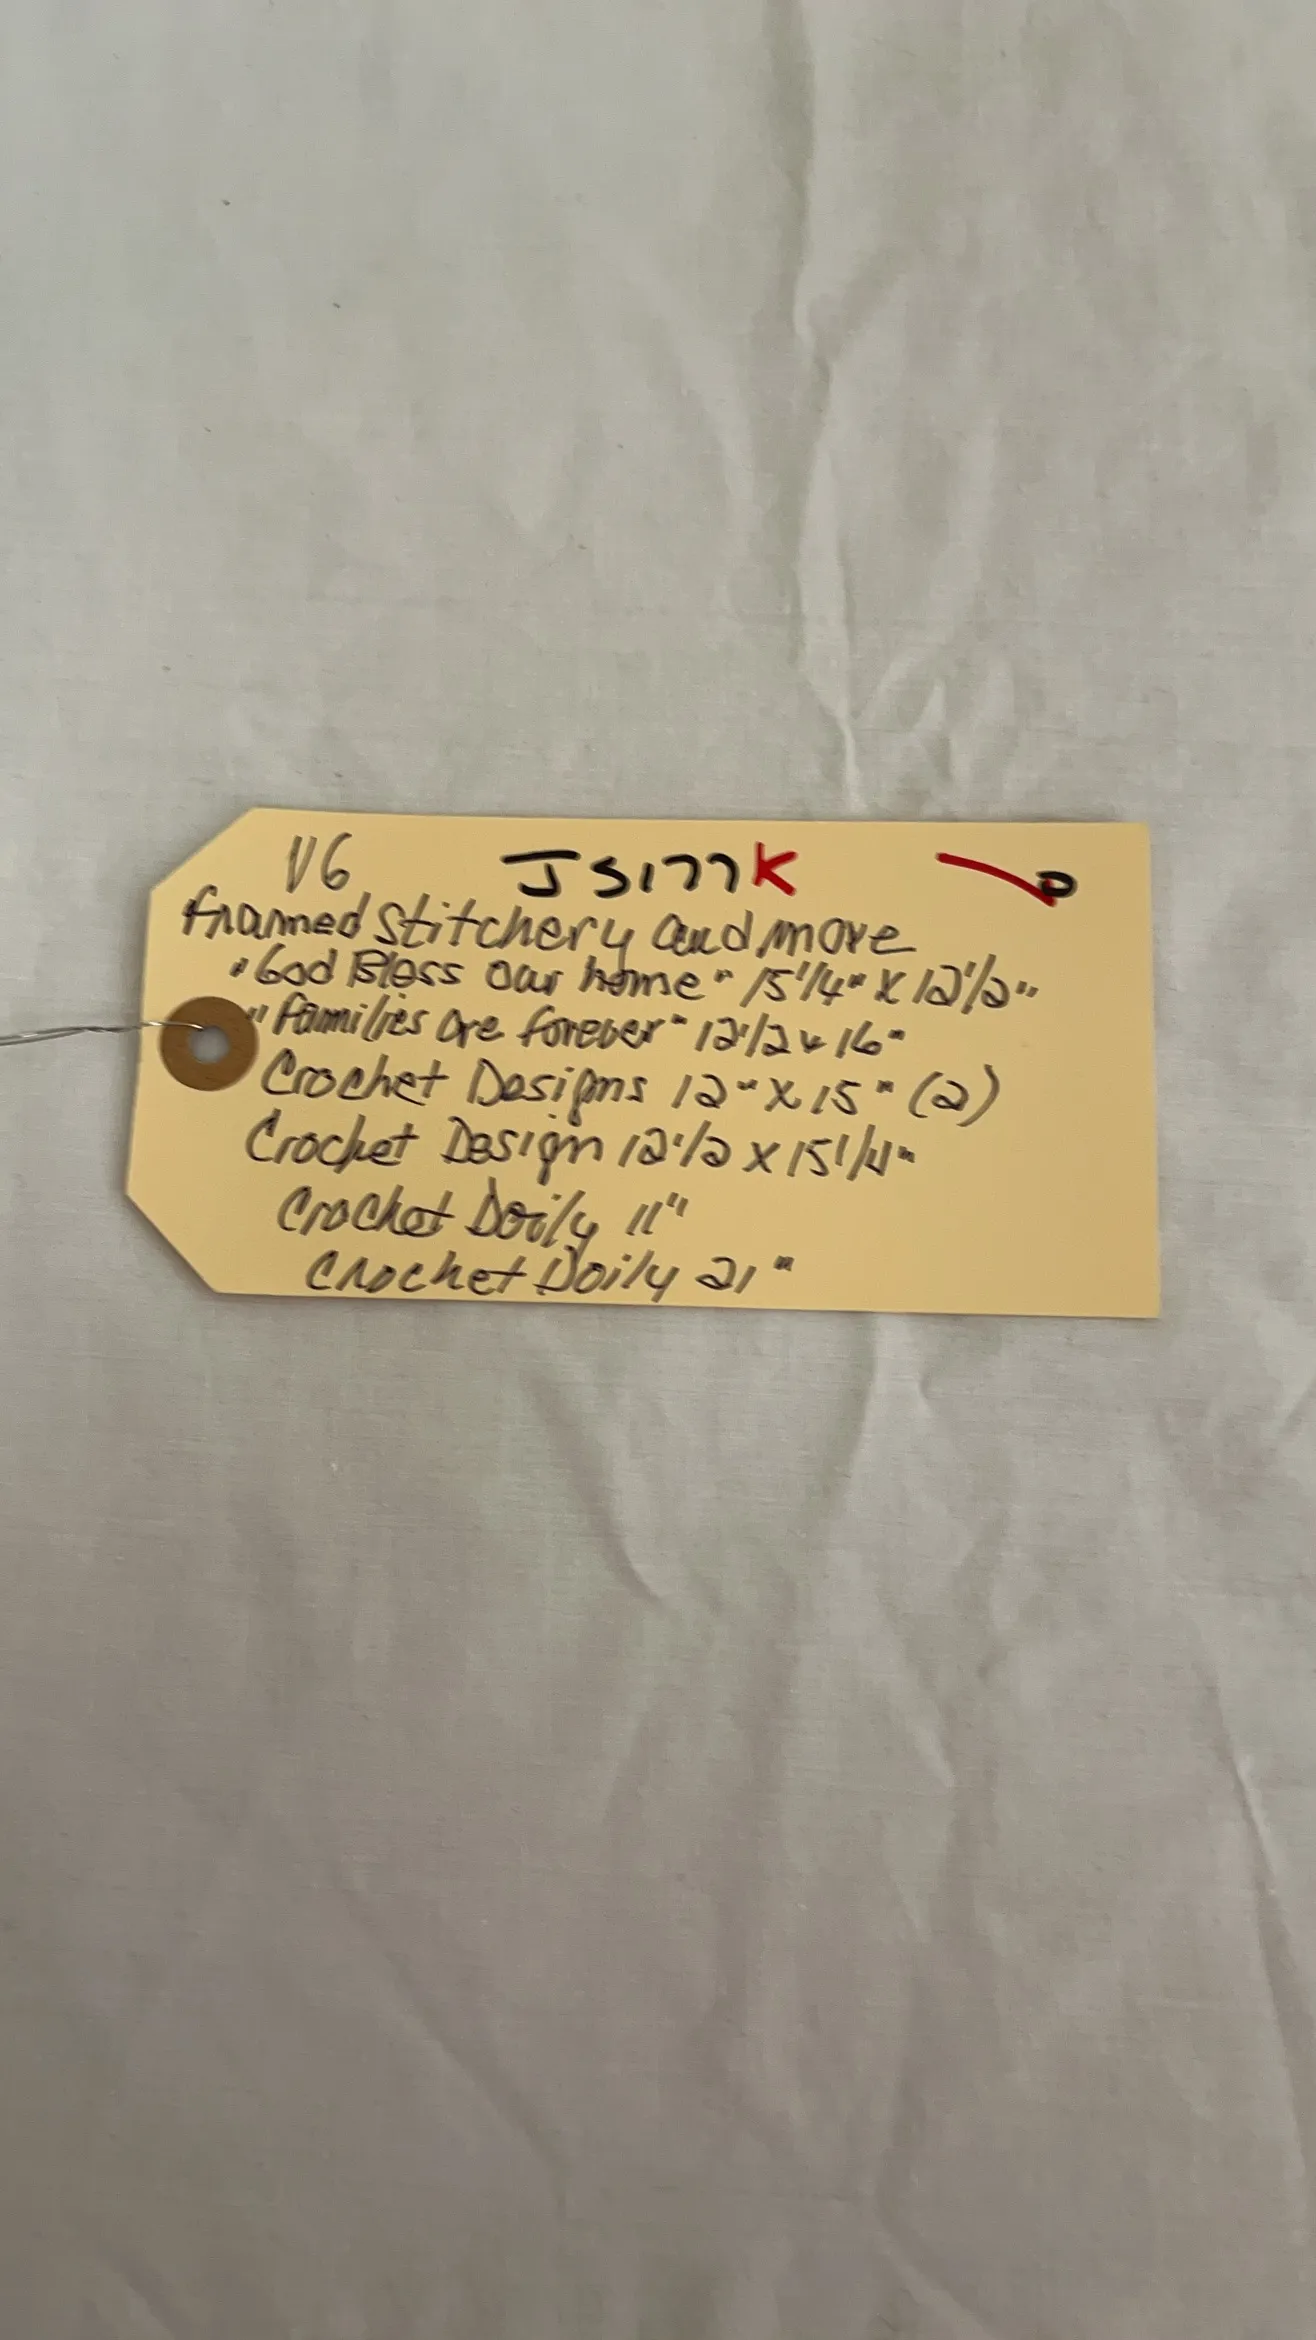 V6 JS177K
framed stitchery and more
"God Bless Our home" 15 1/4" X 12 1/2"
"families are forever" 12 1/2 x 16"
Crochet Designs 12" X 15" (2)
Crochet Design 12 1/2 X 15 1/4"
Crochet Doily 11"
Crochet Doily 21"